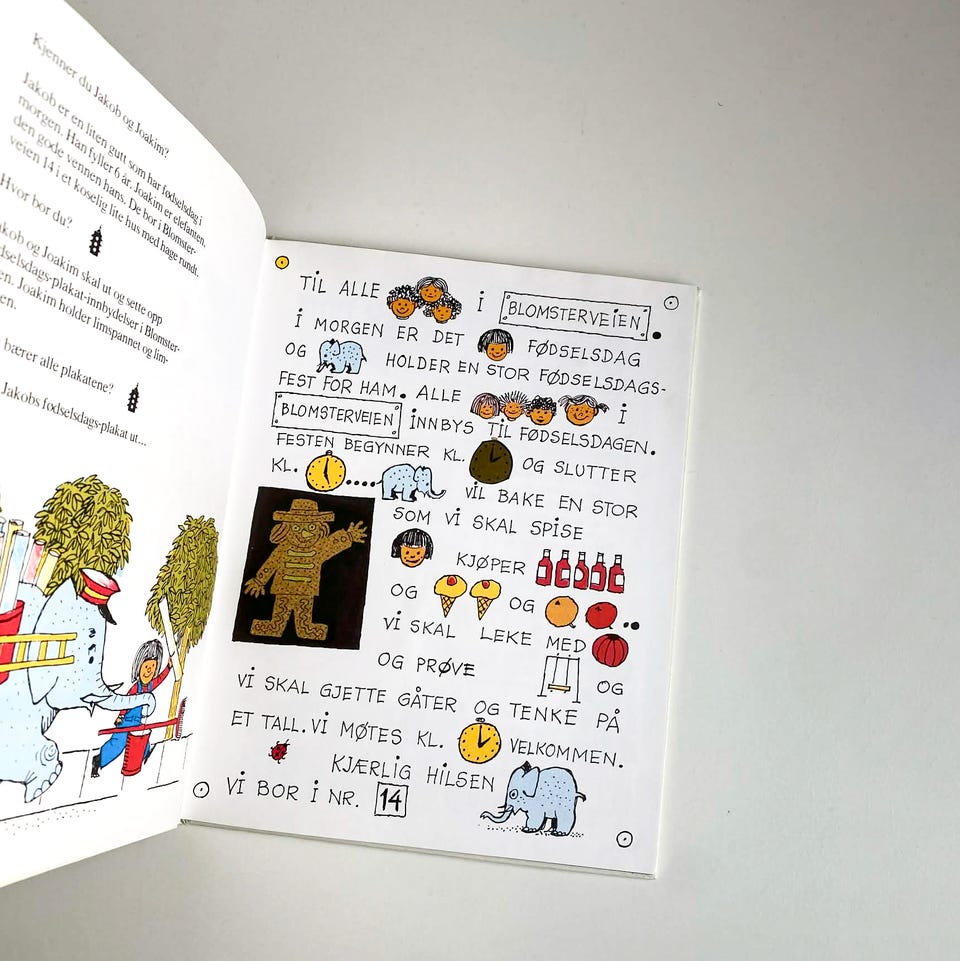 Kjenner du Jakob og Joakim?
Jakob er en liten gutt som har fødselsdag i
morgen. Han fyller 6 år. Joakim er elefanten,
den gode vennen hans. De bor i Blomster-
veien 14 i et koselig lite hus med hage rundt.
Hvor bor du?
akob og Joakim skal ut og sette opp
dselsdags-plakat-innbydelser i Blomster-
en. Joakim holder limspannet og lim-
en.
bærer alle plakatene?
Jakobs fødselsdags-plakat ut...
TIL ALLE I BLOMSTERVEIEN.
I MORGEN ER DET FØDSELSDAG
OG HOLDER EN STOR FØDSELSDAGS-
FEST FOR HAM. ALLE I
BLOMSTERVEIEN INNBYS TIL FØDSELSDAGEN.
FESTEN BEGYNNER KL. OG SLUTTER
KL. ..... VIL BAKE EN STOR
SOM VI SKAL SPISE
KJØPER
OG OG ..
VI SKAL LEKE MED
OG PRØVE OG
VI SKAL GJETTE GÅTER OG TENKE PÅ
ET TALL. VI MØTES KL. VELKOMMEN.
KJÆRLIG HILSEN
VI BOR I NR. 14